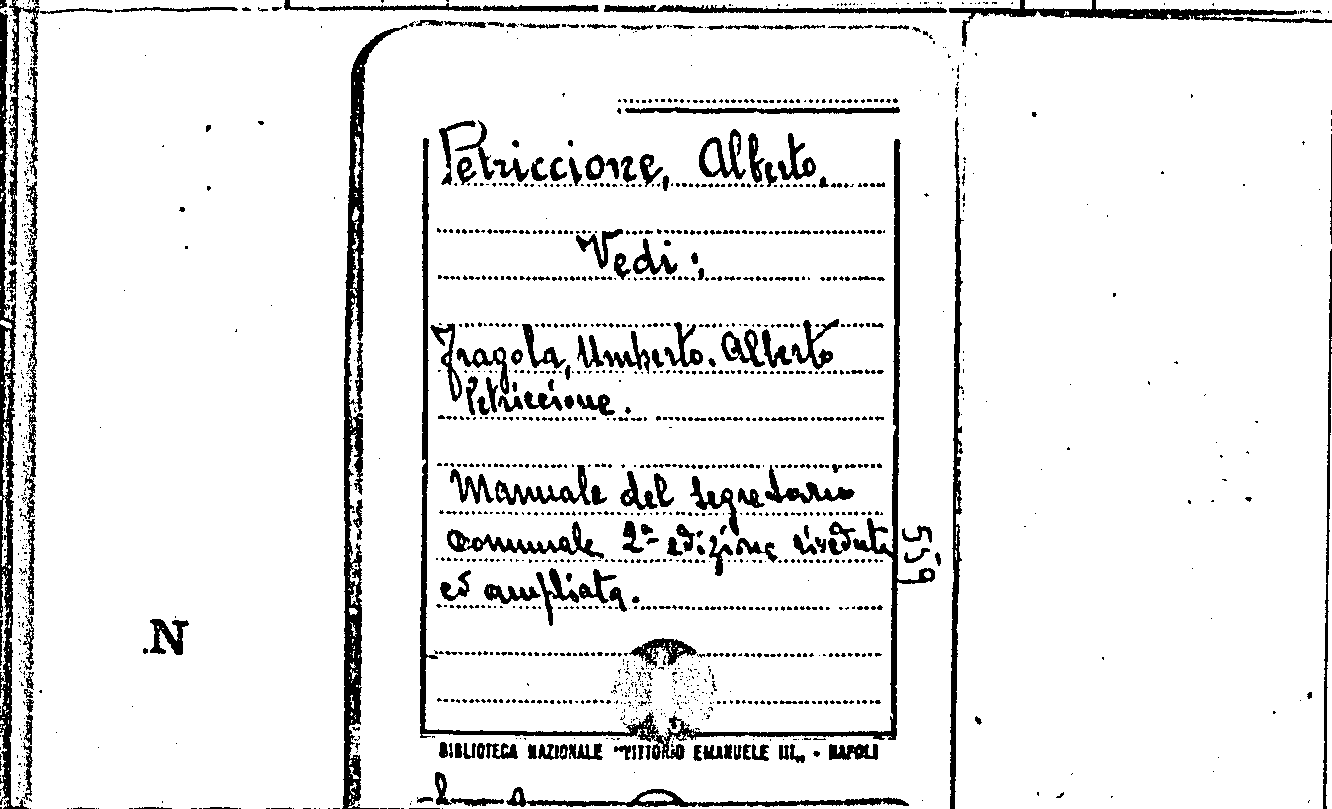 Petriccione, Alberto.
Vedi:
Fragola, Umberto. Alberto
Petriccione.
Manuale del segretario
comunale 2ª edizione riveduta
ed ampliata.
559
.N
BIBLIOTECA NAZIONALE "VITTORIO EMANUELE III„ - NAPOLI